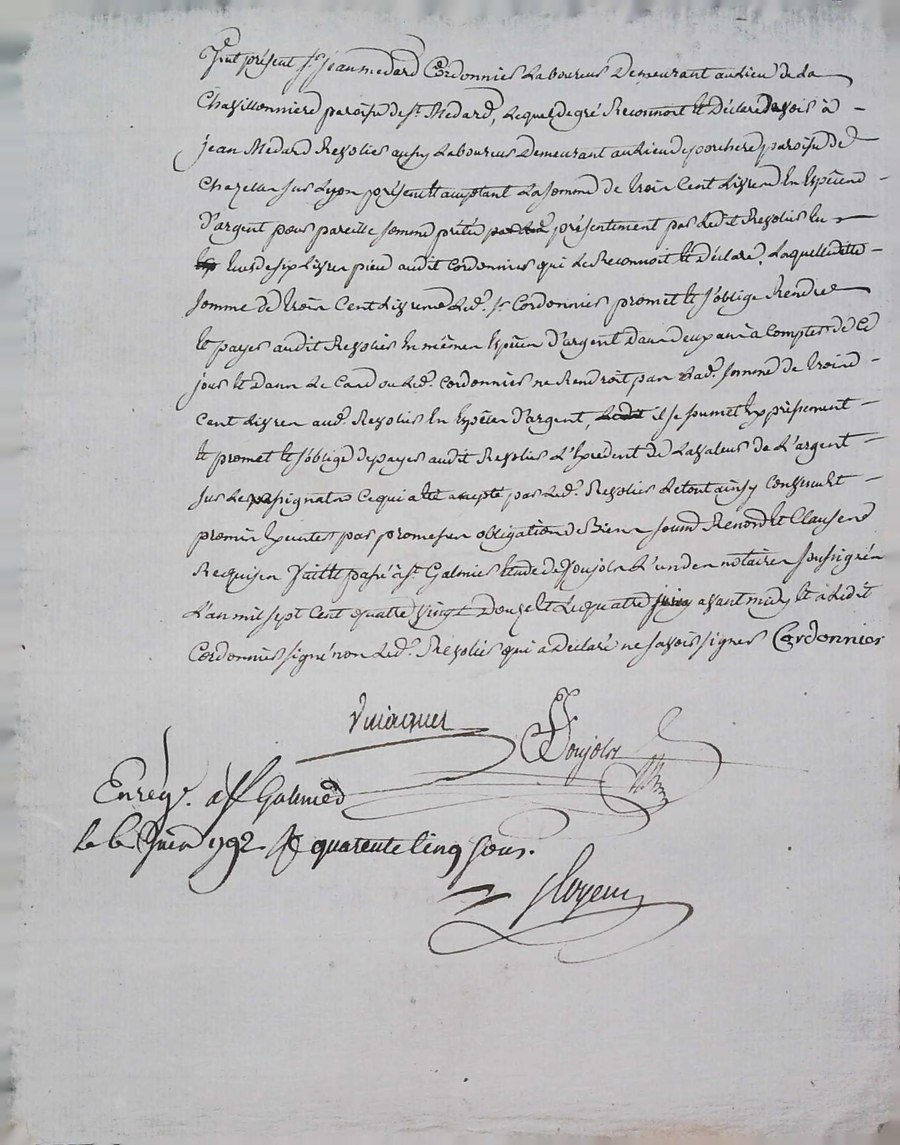 Fut présent Sr Jean medard Cordonnier Laboureur Demeurant au Lieu de la
Chavillonniere paroisse de St. Medard, Lequel de gré Reconnoit et Déclare Devoir à
jean Medard Revolier aussy Laboureur Demeurant au Lieu paroisse de
Chazelles sur Lyon présent et acceptant La somme de trois Cent Livres En Espèces
D'argent pour pareille somme prétée présentement par Ledit Revolier En
Ecus de six Livres pieces audit Cordonnier qui Le Reconnoit et déclare, Laquelle ditte
somme de trois Cent Livres Led. Sr. Cordonnier promet et s'oblige Rendre
et payer audit Revolier En mêmes Espèces D'argent Dans deux ans à Compter de Ce
jour et Dans Le Cas où Led. Cordonnier ne Rendroit pas Lad. somme de trois
Cent Livres aud. Revolier En Espèces D'argent, il se soumet Expressément
et promet et s'oblige de payer audit Revolier L'Excédent de La valeur de L'argent
sur Les assignats Ce qui a été accepté par Led. Revolier Le tout ainsy Convenu et
promis Exécuter par promesses obligations de Biens soums. Renonc. et Clauses
Requises fait et passé à St. Galmier Etude de Poujols L'un des notaires soussignés
L'an mil sept Cent quatre vingt Douze et Le quatre juin avant midy et a Ledit
Cordonnier signé non Led. Revolier qui a Déclaré ne savoir signer Cordonnier
Poujols
Enreg. à St Galmier
le 6 Juin 1792 R quarente cinq sous.